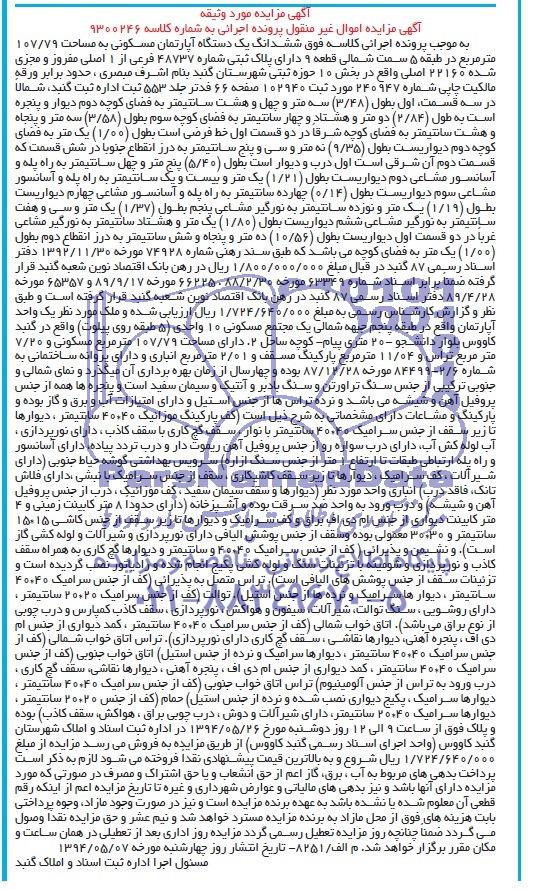 آگهی مزایده مورد وثیقه
آگهی مزایده اموال غیر منقول پرونده اجرائی به شماره کلاسه ۹۳۰۰۲۴۶
به موجب پرونده اجرائی کلاسه فوق ششدانگ یک دستگاه آپارتمان مسکونی به مساحت ۱۰۷/۷۹
مترمربع در طبقه ۵ سمت شمالی قطعه ۹ دارای پلاک ثبتی شماره ۴۸۷۳۷ فرعی از ۱ اصلی مفروز و مجزی
شده ۲۲۱۶۰ اصلی واقع در بخش ۱۰ حوزه ثبتی شهرستان گنبد بنام اشرف مبصری ، حدود برابر ورقه
مالکیت چاپی شماره ۲۴۰۹۴۷ مورد ثبت ۱۰۲۹۴۰ صفحه ۶۶ فدتر جلد ۵۵۳ ثبت اداره ثبت گنبد، شمالا
در سه قسمت، اول بطول (۳/۴۸) سه متر و چهل و هشت سانتیمتر به فضای کوچه دوم دیوار و پنجره
است به طول (۲/۸۴) دو متر و هشتاد و چهار سانتیمتر به فضای کوچه سوم بطول (۳/۵۸) سه متر و پنجاه
و هشت سانتیمتر به فضای کوچه شرقا در دو قسمت اول خط فرضی است بطول (۱/۰۰) یک متر به فضای
کوچه دوم دیواریست بطول (۹/۳۵) نه متر و سی و پنج سانتیمتر به درز انقطاع جنوبا در شش قسمت که
قسمت دوم آن شرقی است اول درب و دیوار است بطول (۵/۴۰) پنج متر و چهل سانتیمتر به راه پله و
آسانسور مشاعی دوم دیواریست بطول (۱/۲۱) یک متر و بیست و یک سانتیمتر به راه پله و آسانسور
مشاعی سوم دیواریست بطول (۰/۱۴) چهارده سانتیمتر به راه پله و آسانسور مشاعی چهارم دیواریست
بطول (۱/۱۹) یک متر و نوزده سانتیمتر به نورگیر مشاعی پنجم بطول (۱/۳۷) یک متر و سی و هفت
سانتیمتر به نورگیر مشاعی ششم دیواریست بطول (۱/۸۰) یک متر و هشتاد سانتیمتر به نورگیر مشاعی
غربا در دو قسمت اول دیواریست بطول (۱۰/۵۶) ده متر و پنجاه و شش سانتیمتر به درز انقطاع دوم بطول
(۱/۰۰) یک متر به فضای کوچه می باشد که طبق سند رهنی شماره ۷۴۹۲۸ مورخه ۱۳۹۲/۱۱/۳۰ دفتر
اسناد رسمی ۸۷ گنبد در قبال مبلغ ۱/۸۰۰/۰۰۰/۰۰۰ ریال در رهن بانک اقتصاد نوین شعبه گنبد قرار
گرفته ضمنا برابر اسناد شماره ۶۳۳۴۹ مورخه ۸۸/۲/۳۰ ، ۶۶۲۲۵ مورخه ۸۹/۹/۱۷ و ۶۵۳۵۷ مورخه
۸۹/۴/۲۸ دفتر اسناد رسمی ۸۷ گنبد در رهن بانک اقتصاد نوین شعبه گنبد قرار گرفته است و طبق
نظر و گزارش کارشناس رسمی به مبلغ ۱/۷۲۴/۶۴۰/۰۰۰ ریال ارزیابی شده و ملک مورد نظر یک واحد
آپارتمان واقع در طبقه پنجم جبهه شمالی یک مجتمع مسکونی ۱۰ واحدی (۵ طبقه روی پیلوت) واقع در گنبد
کاووس بلوار دانشجو -۲۰ متری پیام- کوچه ساحل ۲. دارای مساحت ۱۰۷/۷۹ متر مربع مسکونی و ۷/۲۰
متر مربع تراس و ۱۱/۰۴ مترمربع پارکینگ مسقف و ۲/۰۱ مترمربع انباری و دارای پروانه ساختمانی به
شماره ۲/۶-۸۴۴۹۹ مورخه ۸۷/۱۲/۲۸ بوده و چهارسال از زمان بهره برداری آن میگذرد و نمای شمالی و
جنوبی ترکیبی از جنس سنگ تراورتن و سنگ بادبر و آنتیک و سیمان سفید است و پنجره ها همه از جنس
پروفیل آهن و شیشه می باشد و نرده تراس ها از جنس استیل و دارای امتیازات آب و برق و گاز بوده و
پارکینگ و مشاعات دارای مشخصاتی به شرح ذیل است (کف پارکینگ موزائیک ۴۰*۴۰ سانتیمتر ، دیوارها
تا زیر سقف از جنس سرامیک ۴۰*۴۰ سانتیمتر با نوار ، سقف گچ کاری با سقف کاذب ، دارای نورپردازی ،
آب لوله کش آب، دارای درب سواره رو از جنس پروفیل آهن ریموت دار و درب تردد پیاده، دارای آسانسور
و راه پله ارتباطی طبقات تا ارتفاع ۱ متر از جنس سنگ ازاره) سرویس بهداشتی گوشه حیاط جنوبی (دارای
شیرآلات ، کف سرامیک ، دیوارها تا زیر سقف کاشیکاری ، سقف از جنس سرامیک با نبشی ،دارای فلاش
تانک، فاقد درب) انباری واحد مورد نظر (دیوارها و سقف سیمان سفید ، کف موزائیک ، درب از جنس پروفیل
آهن و شیشه) و درب ورود به واحد ضد سرقت بوده و آشپزخانه (دارای حدودا ۸ متر کابینت زمینی و ۴
متر کابینت دیواری از جنس ام دی اف براق و کف سرامیک و دیوارها تا زیر سقف از جنس کاشی ۱۵*۱۵
سانتیمتر و ۳۰*۳۰ معمولی بوده وسقف از جنس پوشش الیافی دارای نورپردازی و شیرآلات و لوله کشی گاز
است). و نشیمن و پذیرائی (کف از جنس سرامیک ۴۰*۴۰ سانتیمتر و دیوارها گچ کاری به همراه سقف
کاذب و نورپردازی و شومینه با تزئینات سنگ و لوله کشی پکیج انجام شده و رادیاتور نصب گردیده است و
تزئینات سقف از جنس پوشش های الیافی است). تراس متصل به پذیرائی (کف از جنس سرامیک ۴۰*۴۰
سانتیمتر ، دیوار ها سرامیک و نرده ها از جنس استیل). توالت (کف از جنس سرامیک ۲۰*۲۰ سانتیمتر ،
دارای روشویی ، سنگ توالت، شیرآلات، سیفون و هواکش، نورپردازی ، سقف کاذب کمپارس و درب چوبی
از نوع براق می باشد). اتاق خواب شمالی (کف از جنس سرامیک ۴۰*۴۰ سانتیمتر ، کمد دیواری از جنس ام
دی اف ، پنجره آهنی، دیوارها نقاشی ، سقف گچ کاری دارای نورپردازی). تراس اتاق خواب شمالی (کف از
جنس سرامیک ۴۰*۴۰ سانتیمتر ، دیوارها سرامیک و نرده از جنس استیل) اتاق خواب جنوبی (کف از جنس
سرامیک ۴۰*۴۰ سانتیمتر ، کمد دیواری از جنس ام دی اف ، پنجره آهنی ، دیوارها نقاشی، سقف گچ کاری ،
درب ورود به تراس از جنس آلومینیوم) تراس اتاق خواب جنوبی (کف از جنس سرامیک ۴۰*۴۰ سانتیمتر ،
دیوارها سرامیک ، پکیج دیواری نصب شده و نرده از جنس استیل) حمام (کف از جنس ۲۰*۲۰ سانتیمتر ،
دیوارها سرامیک ۴۰*۲۰ سانتیمتر، دارای شیرآلات و دوش ، درب چوبی براق ، هواکش، سقف کاذب) بوده
و پلاک فوق از ساعت ۹ الی ۱۲ روز دوشنبه مورخ ۱۳۹۴/۰۵/۲۶ در اداره ثبت اسناد و املاک شهرستان
گنبد کاووس (واحد اجرای اسناد رسمی گنبد کاووس) از طریق مزایده به فروش می رسد مزایده از مبلغ
۱/۷۲۴/۶۴۰/۰۰۰ ریال شروع و به بالاترین قیمت پیشنهادی نقدا فروخته می شود لازم به ذکر است
پرداخت بدهی های مربوط به آب ، برق، گاز اعم از حق انشعاب و یا حق اشتراک و مصرف در صورتی که مورد
مزایده دارای آنها باشد و نیز بدهی های مالیاتی و عوارض شهرداری و غیره تا تاریخ مزایده اعم از اینکه رقم
قطعی آن معلوم شده یا نشده باشد به عهده برنده مزایده است و نیز در صورت وجود مازاد، وجوه پرداختی
بابت هزینه های فوق از محل مازاد به برنده مزایده مسترد خواهد شد و نیم عشر و حق مزایده نقدا وصول
می گردد ضمنا چنانچه روز مزایده تعطیل رسمی گردد مزایده روز اداری بعد از تعطیلی در همان ساعت و
مکان مقرر برگزار خواهد شد. م الف/۸۲۵۱- تاریخ انتشار روز چهارشنبه مورخه ۱۳۹۴/۰۵/۰۷
مسئول اجرا اداره ثبت اسناد و املاک گنبد